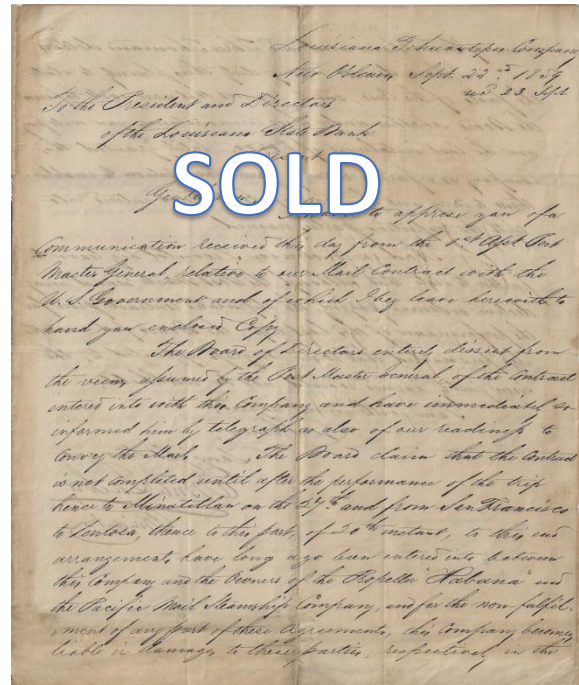 Louisiana Tehuantepec Company
New Orleans Sept. 22nd 1859
To the President and Directors
of the Louisiana State Bank
Present
SOLD
Gentlemen
to apprise you of a
Communication received this day from the 1st Asst Post
Master General, relative to our Mail Contract with the
U. S. Government and of which I beg leave herewith to
hand you enclosed Copy
The Board of Directors entirely dissent from
the views assumed by the Post Master General of the Contract
entered into with this Company and have immediately so
informed him by telegraph as also of our readiness to
Convey the Mails. The Board claim that the Contract
is not completed until after the performance of the trip
hence to Minatitlan on the 27th and from San Francisco
to Ventosa, thence to this port, of 20th instant, to this end
arrangements have long ago been entered into between
this Company and the Owners of the Propeller Habana and
the Pacific Mail Steamship Company, and for the non-fulfil-
ment of any part of these Agreements, this Company becomes
liable in damages to these parties, respectively, in the